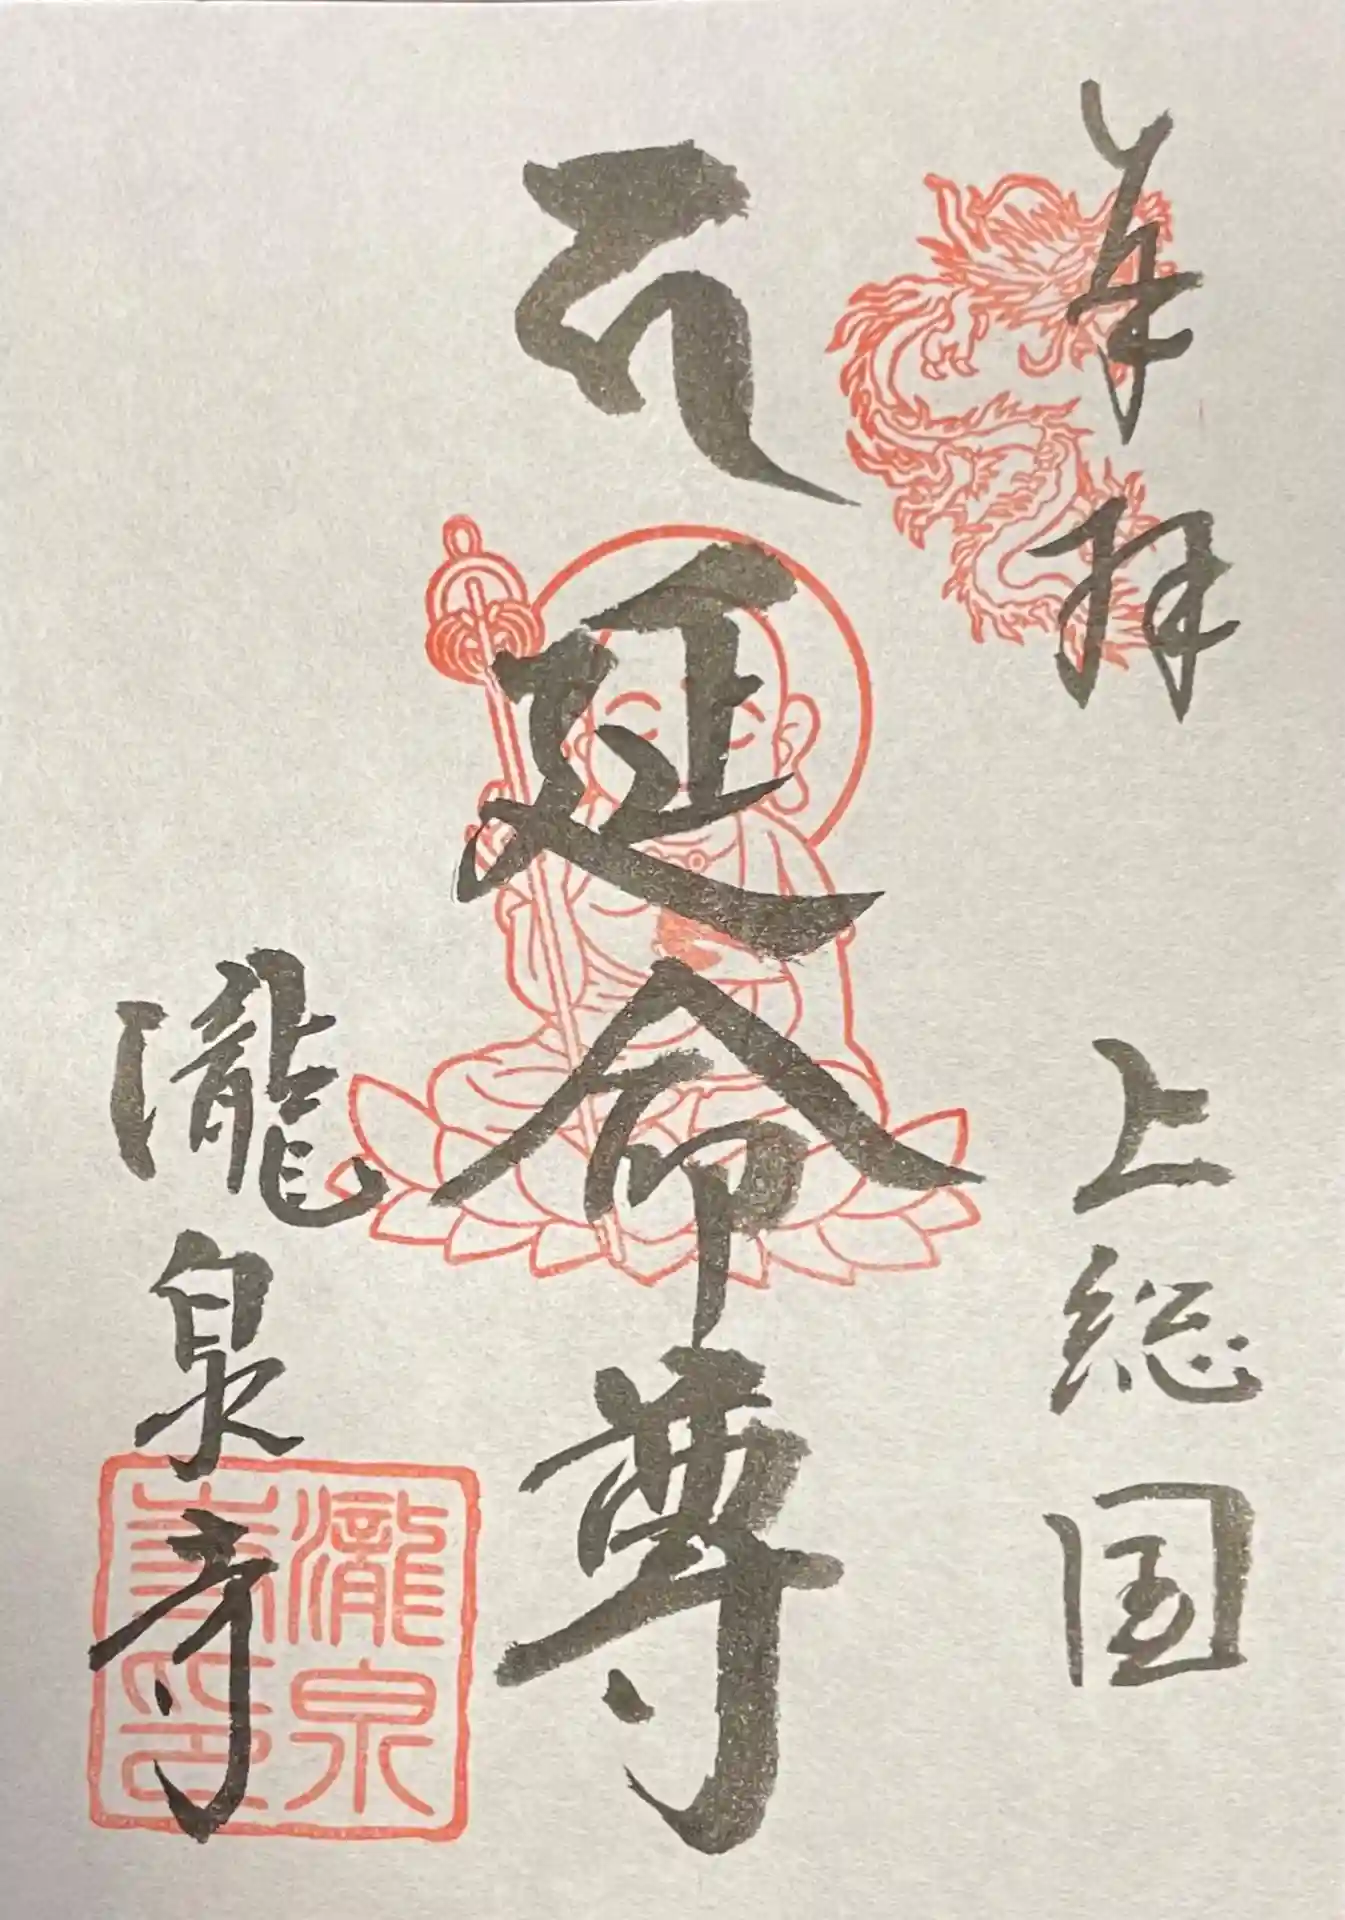 奉拝
上総国
延命尊
瀧泉寺
瀧泉寺印